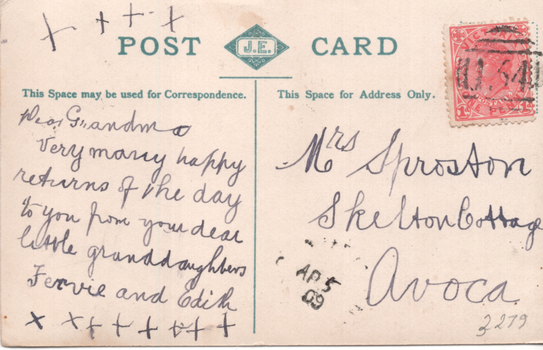 x x x x
POST J.E. CARD
This Space may be used for Correspondence.
This Space for Address Only.
Dear Grandma
Very many happy
returns of the day
to you from your dear
little granddaughters
Fervie and Edith
x x x x x x x x
Mrs Sproston
Skelton Cottage
Avoca
AP 5
09
2279